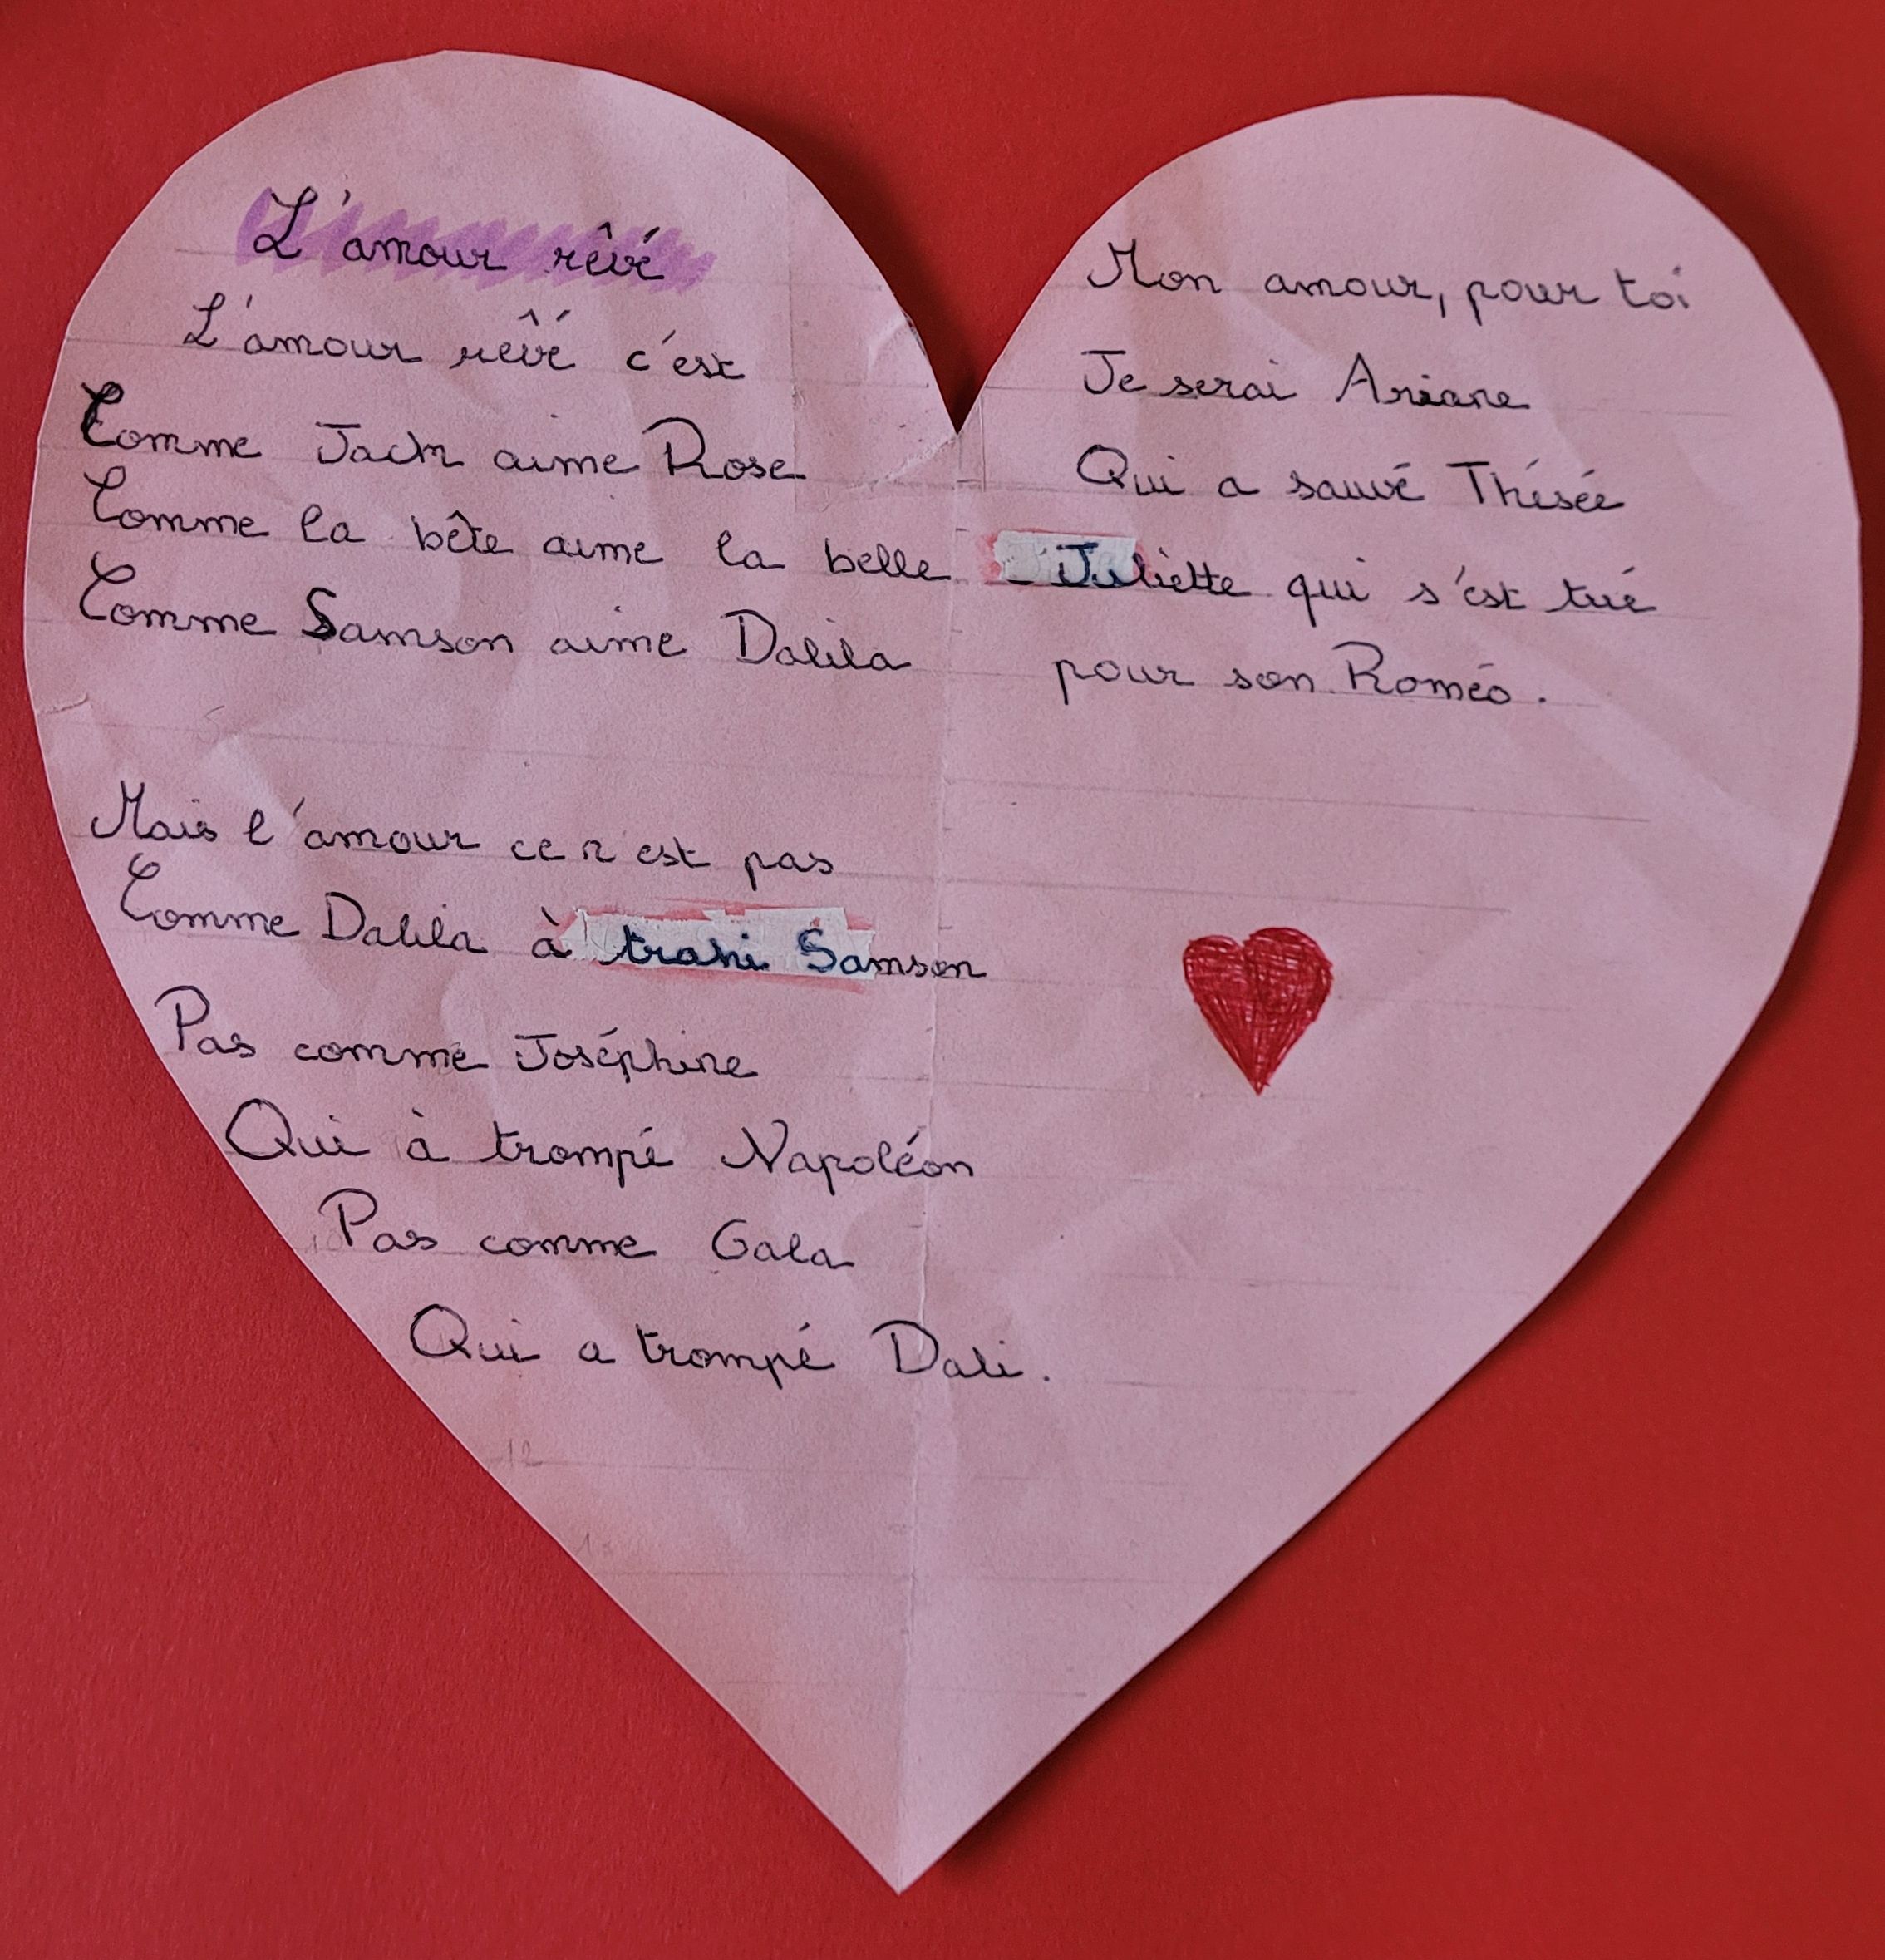 L'amour rêvé
L'amour rêvé c'est
Comme Jack aime Rose
Comme la bête aime la belle
Comme Samson aime Dalila
Mais l'amour ce n'est pas
Comme Dalila à trahi Samson
Pas comme Joséphine
Qui à trompé Napoléon
Pas comme Gala
Qui a trompé Dali.
12
Mon amour, pour toi
Je serai Ariane
Qui a sauvé Thésée
Juliette qui s'est tué
pour son Roméo.